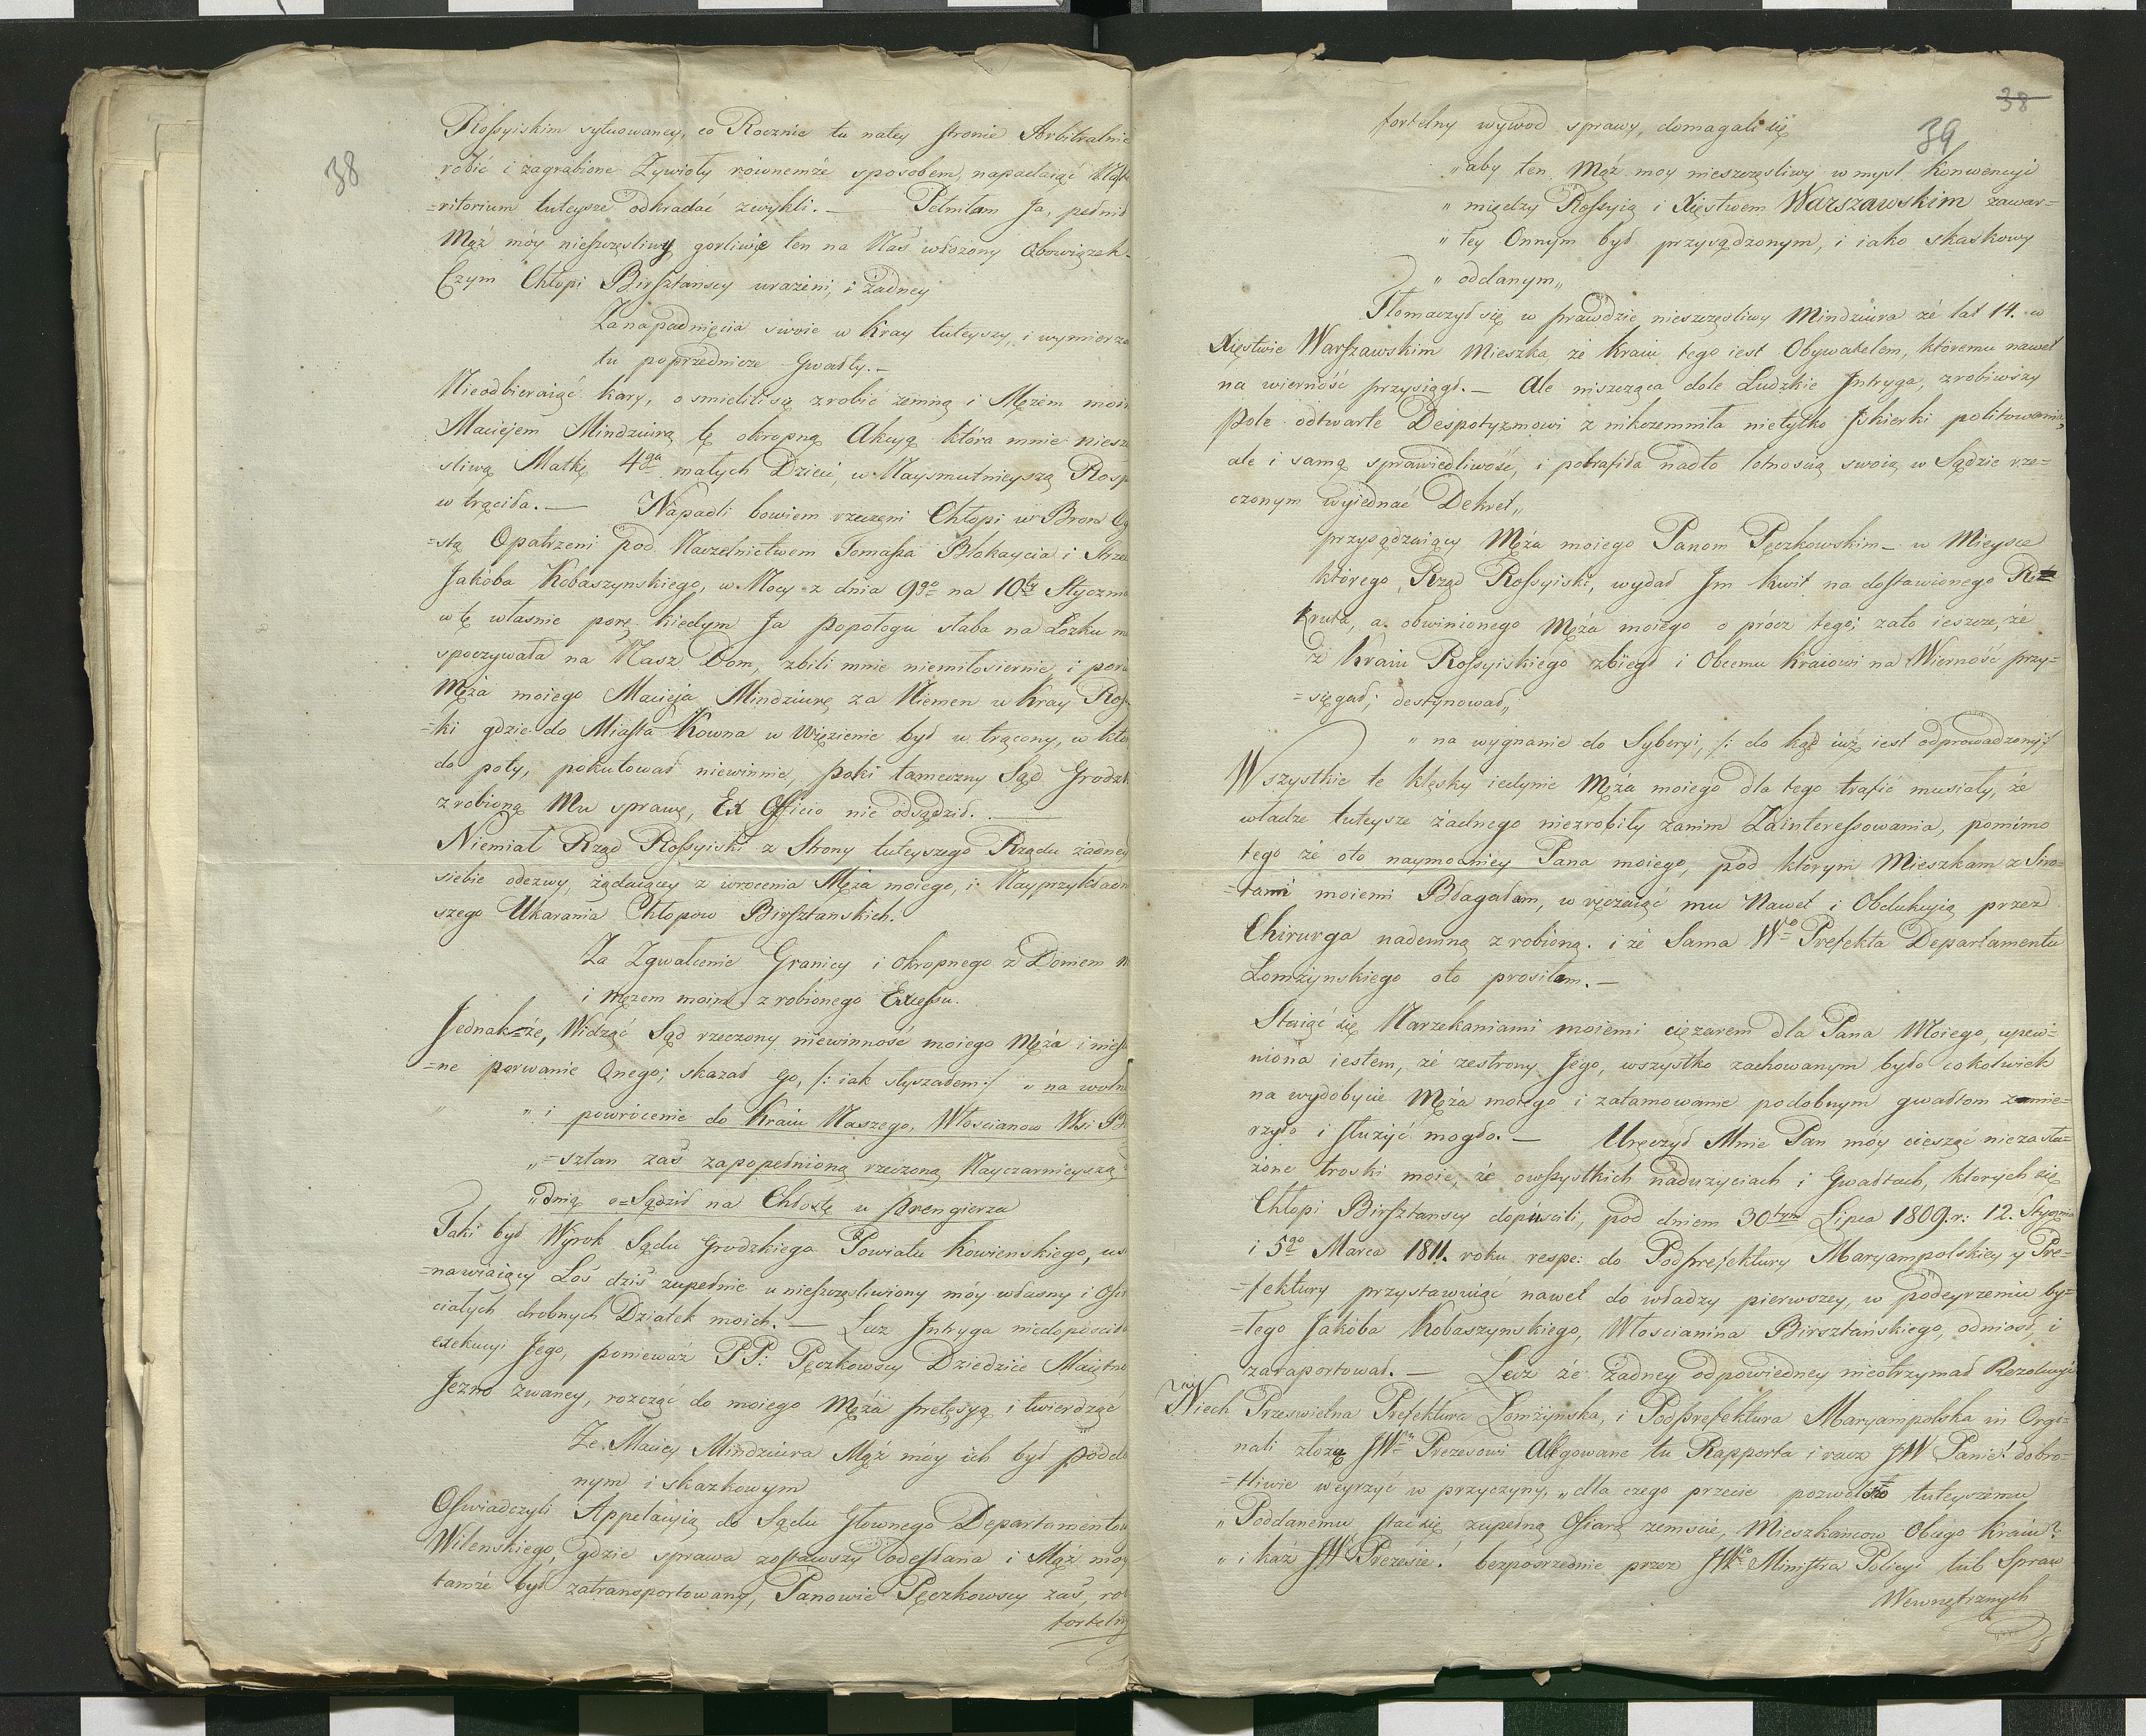 38
Rossyiskim sytuowaney, co Rocznie tu natey stronie Arbitralnie
robić i zagrabione Żywioły równemże sposobem, napadaiąc
=ritorium tuteysze odkradać zwykli. — Pełniłam Ja, pełnił
Mąż móy nieszczęsliwy gorliwie ten na Nas włożony obowiązek.
Czym Chłopi Birsztańscy urażeni, i żadney
Za napadnięcia swoie w Kray tuteyszy, i wymierza
tu poprzednicze Gwałty. —
Nieodbieraiąc kary, osmielili są zrobić zemną i Mężem moim
Maciejem Mindziurą tę okropną Akcyą która mnie niesz
sliwą Matkę 4ga małych Dzieci, w Naysmutnieyszą Rosp
wtrąciła. — Napadli bowiem rzeczeni Chłopi w Broń Og
=stą Opatrzeni pod Naczelnictwem Tomasza Blokaycia i Strze
Jakóba Kobaszynskiego, w Nocy z dnia 9go na 10ty Stycznia
w tę własnie porę kiedym Ja popołogu słaba na Łożku m
spoczywała na Nasz Dom, zbili mnie niemiłosiernie, i porw
Męża moiego Macieja Mindziurę za Niemen w Kray Ros
=ki gdzie do Miasta Kowna w Więzienie był wtrącony, w któ
do poty, pokutował niewinnie, poki tameczny Sąd Grodzk
zrobioną Mu sprawę, Ex Officio nie odsądził. —
Niemiał Rząd Rossyiski z Strony tuteyszego Rządu żadney
siebie odezwy, żądaiącey zwrocenia Męża moiego, i Nayprzykładn
szego Ukarania Chłopow Birsztanskich.
Za Zgwałcenie Granicy i okropnego z Domem m
i mężem moim zrobionego Excessu.
Jednak=że, Widząc Sąd rzeczony niewinność moiego Męża i nies
=ne porwanie Onego; skazał Go, /: iak słyszałem :/ „ na wolno
„ „ i powrócenie do Kraiu Naszego, Włoscianow Wsi B
„=sztan zaś zapopełnioną rzeczoną Nayczarnieyszą
„dnią o=Sądził na Chłostę u Prengierza
Taki był Wyrok Sądu Grodzkiego Powiatu Kowienskiego, us
=nawiaiący Los dziś zupełnie unieszczęsliwiony móy własny i Osi
ciałych drobnych Działek moich. — Lecz Intryga niedopuscił
exekucyi Jego, ponieważ PP: Pęczkowscy Dziedzice Maiętno
Jezno zwaney, rozcząc do moiego Męża pretęsyą i twierdząc
Ze Maciey Mindziura Mąż móy ich był podda
nym i skazkowym
Oświadczyli Appelacyią do Sądu Głownego Departamentow
Wilenskiego, gdzie sprawa zostawszy odesłana i Mąż moy
tamże był zatransportowany, Panowie Pęczkowscy zaś, rob
fortelny
38
39
fortelny wywod sprawy, domagali się
„aby ten Mąż moy nieszczęsliwy w mysl Konwencyi
„ między Rossyią i Xięstwem Warszawskim zawar=
„ tey Onnym był przysądzonym, i iako skaskowy
„ oddanym„
Tłomaczył się w prawdzie nieszczęsliwy Mindziura że lat 14. w
Xięstwie Warszawskim Mieszka, że Kraiu tego iest Obywatelem, któremu nawet
na wierność przysiągł. — Ale niszcząca dole Ludzkie Intryga, zrobiwszy
pole odtwarte Despotyzmowi znikczemniła nietylko Iskierki politowania,
ale i samą sprawiedliwość, i potrafiła nadto lotnoscią swoią w Sądzie rze=
czonym wyiednać Dekret„
przysądzaiący Męża moiego Panom Pęczkowskim — w Mieysce
którego, Rząd Rossyiski, wydał Im Kwit na dostawionego Re
kruta, a obwinionego Męża moiego o prócz tego; zato ieszcze, że
z Kraiu Rossyiskiego zbiegł i Obcemu kraiowi na Wierność przy=
=sięgał, destynował„
„ na wygnanie do Syberyi, /: do kąd iuż iest odprowadzony:/
Wszystkie te klęsky iedynie Męża moiego dla tego trafić musiały, że
władze tuteysze żadnego niezrobiły zanim Zainteressowania, pomimo
tego że oto naymocniey Pana moiego, pod którym Mieszkam z Siro=
=tami moiemi Błagałam, wręczaiąc mu Nawet i Obdukcyią przez
Chirurga nademną zrobioną. i że Sama Wgo Prefekta Departamentu
Łomżynskiego oto prosiłam. —
Staiąc się Narzekaniami moiemi ciężarem dla Pana Moiego, upew=
niona iestem, że zestrony Jego, wszystko zachowanym było cokolwiek
na wydobycie Męża moiego i zatamowanie podobnym gwałtom zmie=
rzyło i służyć mogło. — Uręczył Mnie Pan móy ciesząc niezasłu=
żone troski moie, że owszystkich nadużyciach i Gwałtach, ktorych się
Chłopi Birsztanscy dopuscili, pod dniem 30tym Lipca 1809. r: 12. Stycznia
i 5go Marca 1811. roku respe: do Podprefektury Maryampolskiey y Pre=
=fektury przystawuiąc nawet do władzy pierwszey, w podeyrzeniu by=
=łego Jakóba Kobaszynskiego, Włoscianina Birsztańskiego, odniosł, i
zaraportował. — Lecz że żadney odpowiedney nieotrzymał Rezolucyi
Niech Przeswietna Prefektura Łomżynska, i Podprefektura Maryampolska in Orgi=
nali złożą JWmu Prezesowi Allegowane tu Rapporta i racz JW Panie! dobro=
=tliwie weyrzyć w przyczyny, „dla czego przecie pozwolono tuteyszemu
„ Poddanemu stać się zupełną Ofiarą zemscie, Mieszkancow Obcego Kraiu?
„ i każ JW Prezesie! bezposrzednie przez JWo Ministra Policyi lub Spraw
Wewnętrznych